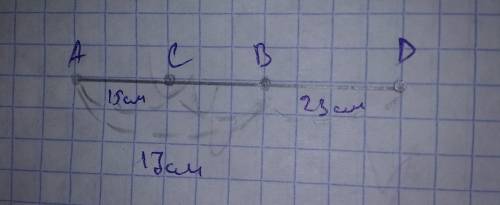 A C B D
15см 23см
17см